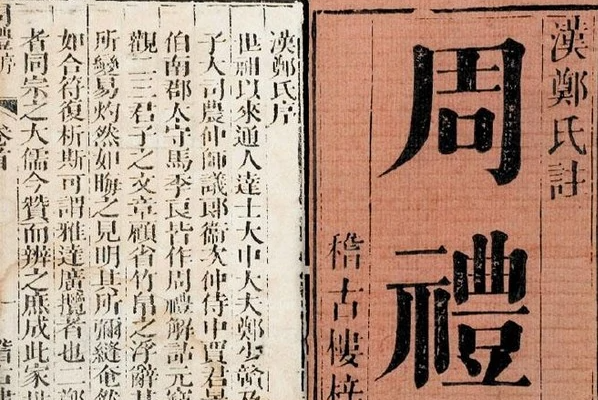 漢鄭氏註
周禮
稽古樓梓
漢鄭氏序
世祖以來通人達士大中大夫鄭少贛及
子大司農仲師議郎衞次仲侍中賈君景
伯南郡太守馬季長皆作周禮解詁元竊
觀二三君子之文章顧省竹帛之浮辭其
所變易灼然如晦之見明其所彌縫奄然
如合符復析斯可謂雅達廣攬者也二鄭
者同宗之大儒今讚而辨之庶成此家世
周禮序 卷首 一 稽古樓